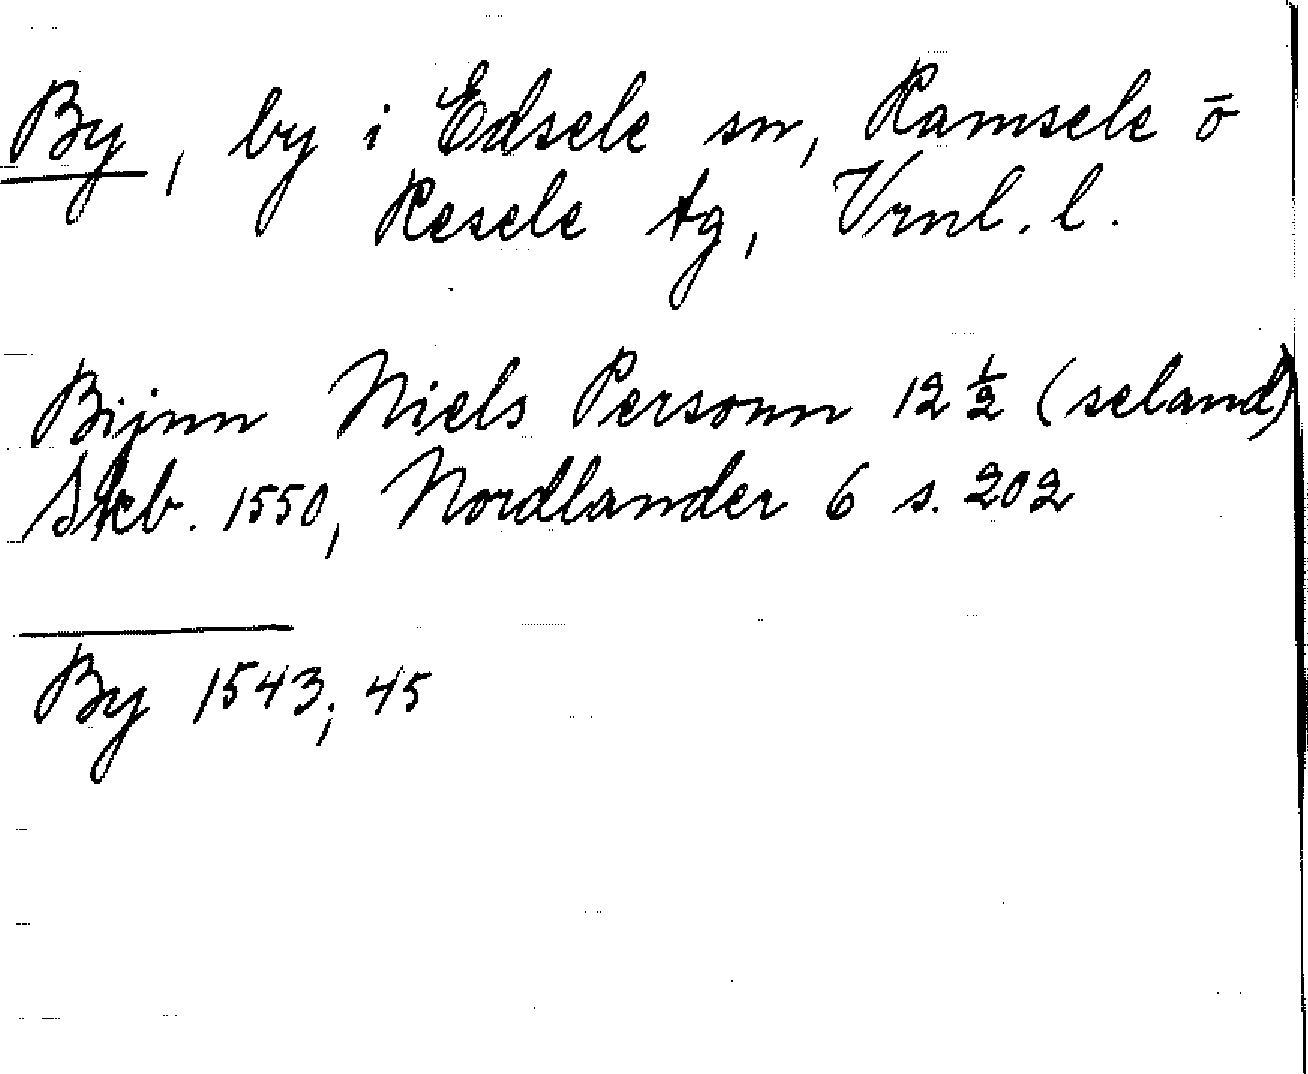 By, by i Edsele sn, Ramsele o
Resele tg, Vrnl. l.
Bijnn Niels Personn 12 ½ (seland)
Skb. 1550, Nordlander 6 s. 202
By 1543; 45